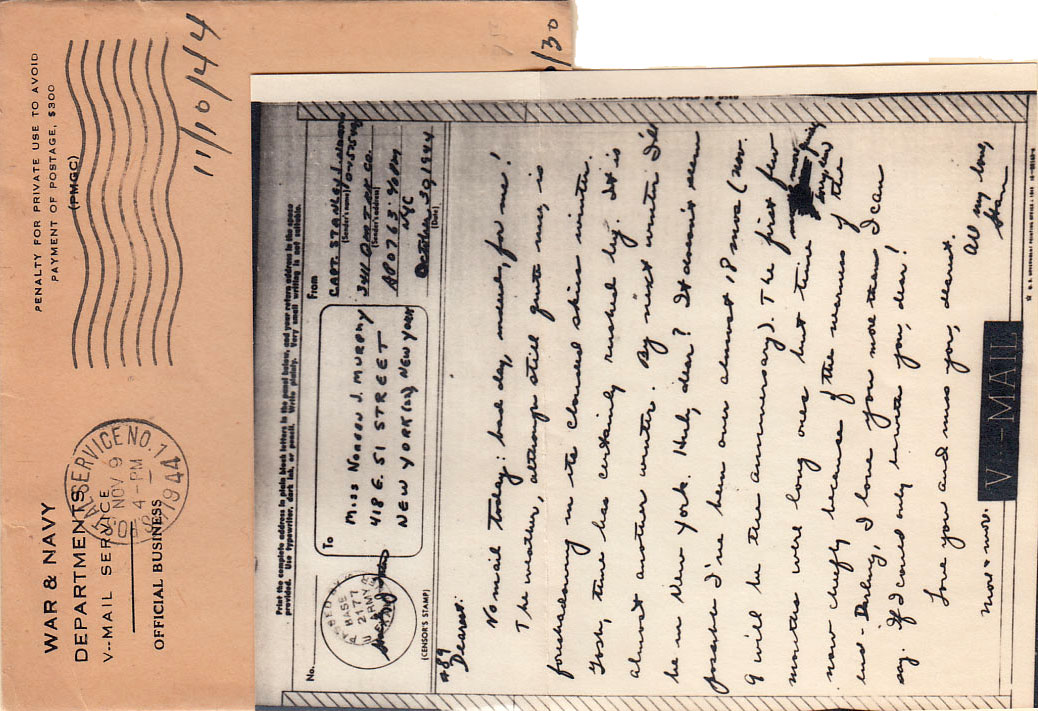 WAR & NAVY
DEPARTMENTS
V--MAIL SERVICE
OFFICIAL BUSINESS
POSTAL SERVICE NO. 1
NOV 9
4-PM
1944
PENALTY FOR PRIVATE USE TO AVOID
PAYMENT OF POSTAGE, $300
(PMGC)
11/10/44
/30
Print the complete address in plain block letters in the panel below, and your return address in the space
provided. Use typewriter, dark ink, or pencil. Write plainly. Very small writing is not suitable.
No.
PASSED BY
BASE
2177
ARMY
(CENSOR'S STAMP)
To
MISS NOREEN J. MURPHY
418 E. 51 STREET
NEW YORK (22) NEW YORK
From
CAPT. STANLEY
(Sender's name)
3411 ORD TN CO.
(Sender's address)
APO 763 % PM
NYC
October 30, 1944
(Date)
#89
Dearest:
No mail today: bad day, indeed, for me!
The weather, although still quite nice, is
foreshadowing in the clouded skies winter.
Gosh, time has certainly rushed by. It is
almost another winter. By next winter I'll
be in New York. Huh, dear? It doesn't seem
possible I've been over almost 18 mos (Nov.
9 will be the anniversary). The first few
months were long ones but time
now chiefly because of the nearness of the
end - Darling, I love you more than I can
say. If I could only invite you, dear!
Love you and miss you, dearest.
All my love,
Stan
more & more.
V--MAIL
U. S. GOVERNMENT PRINTING OFFICE : 1944